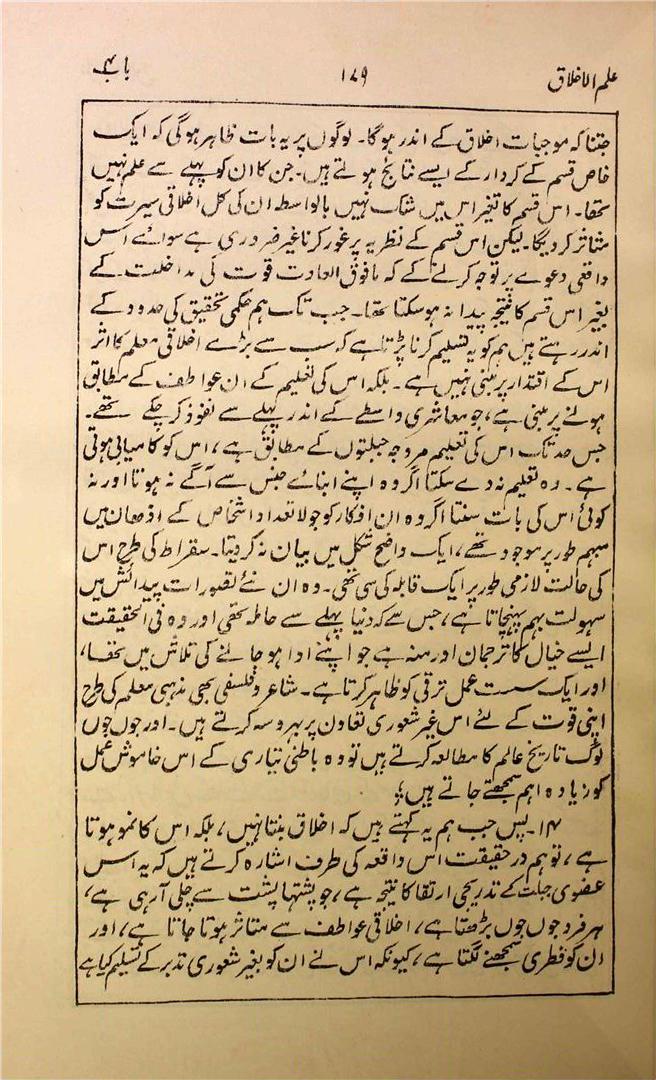 علم الاخلاق ۱۷۹ باب۴
جتنا کہ موجبات اخلاق کے اندر ہوگا۔ لوگوں پر یہ بات ظاہر ہوگی کہ ایک
خاص قسم کے کردار کے ایسے نتائج ہوتے ہیں۔ جن کا ان کو پہلے سے علم نہیں
تھا۔ اس قسم کا تغیر اس میں شک نہیں بالواسطہ ان کی کل اخلاقی سیرت کو
متاثر کردیگا۔ لیکن اس قسم کے نظریہ پر غور کرنا غیر ضروری ہے سوائے اس
واقعی دعوے پر توجہ کرلینے کے کہ مافوق العادت قوت کی مداخلت کے
بغیر اس قسم کا نتیجہ پیدا نہ ہوسکتا تھا۔ جب تک ہم حکمی تحقیق کی حدود کے
اندر رہتے ہیں ہم کو یہ تسلیم کرنا پڑتا ہے کہ سب سے بڑے اخلاقی معلم کا اثر
اس کے اقتدار پر مبنی نہیں ہے۔ بلکہ اس کی تعلیم کے ان عواطف کے مطابق
ہونے پر مبنی ہے، جو معاشری واسطے کے اندر پہلے سے نفوذ کر چکے تھے۔
جس حد تک اس کی تعلیم مروجہ جبلتوں کے مطابق ہے، اس کو کامیابی ہوتی
ہے۔ وہ تعلیم نہ دے سکتا اگر وہ اپنے ابنائے جنس سے آگے نہ ہوتا اور نہ
کوئی اس کی بات سنتا اگر وہ ان افکار کو جو لاتعداد اشخاص کے اذہان میں
مبہم طور پر موجود تھے، ایک واضح شکل میں بیان نہ کردیتا۔ سقراط کی طرح اس
کی حالت لازمی طور پر ایک قابلہ کی سی تھی۔ وہ ان نئے تصورات پیدائش میں
سہولت بہم پہنچاتا ہے، جس سے کہ دنیا پہلے سے حاملہ تھی اور وہ فی الحقیقت
ایسے خیال کا ترجمان اور منہ ہے جو اپنے ادا ہوجانے کی تلاش میں تھا،
اور ایک سست عمل ترقی کو ظاہر کرتا ہے۔ شاعر و فلسفی بھی مذہبی معلم کی طرح
اپنی قوت کے لئے اس غیر شعوری تعاون پر بھروسہ کرتے ہیں۔ اور جوں جوں
لوگ تاریخ عالم کا مطالعہ کرتے ہیں تو وہ باطنی تیاری کے اس خاموش عمل
کو زیادہ اہم سمجھتے جاتے ہیں؛
۱۴۔ پس جب ہم یہ کہتے ہیں کہ اخلاق بنتا نہیں، بلکہ اس کا نمو ہوتا
ہے، تو ہم درحقیقت اس واقعہ کی طرف اشارہ کرتے ہیں کہ یہ اس
عضوی جبلت کے تدریجی ارتقا کا نتیجہ ہے، جو پشتہا پشت سے چلی آرہی ہے،
ہر فرد جوں جوں بڑھتا ہے، اخلاقی عواطف سے متاثر ہوتا جاتا ہے، اور
ان کو فطری سمجھنے لگتا ہے، کیونکہ اس نے ان کو بغیر شعوری تدبر کے تسلیم کیا ہے